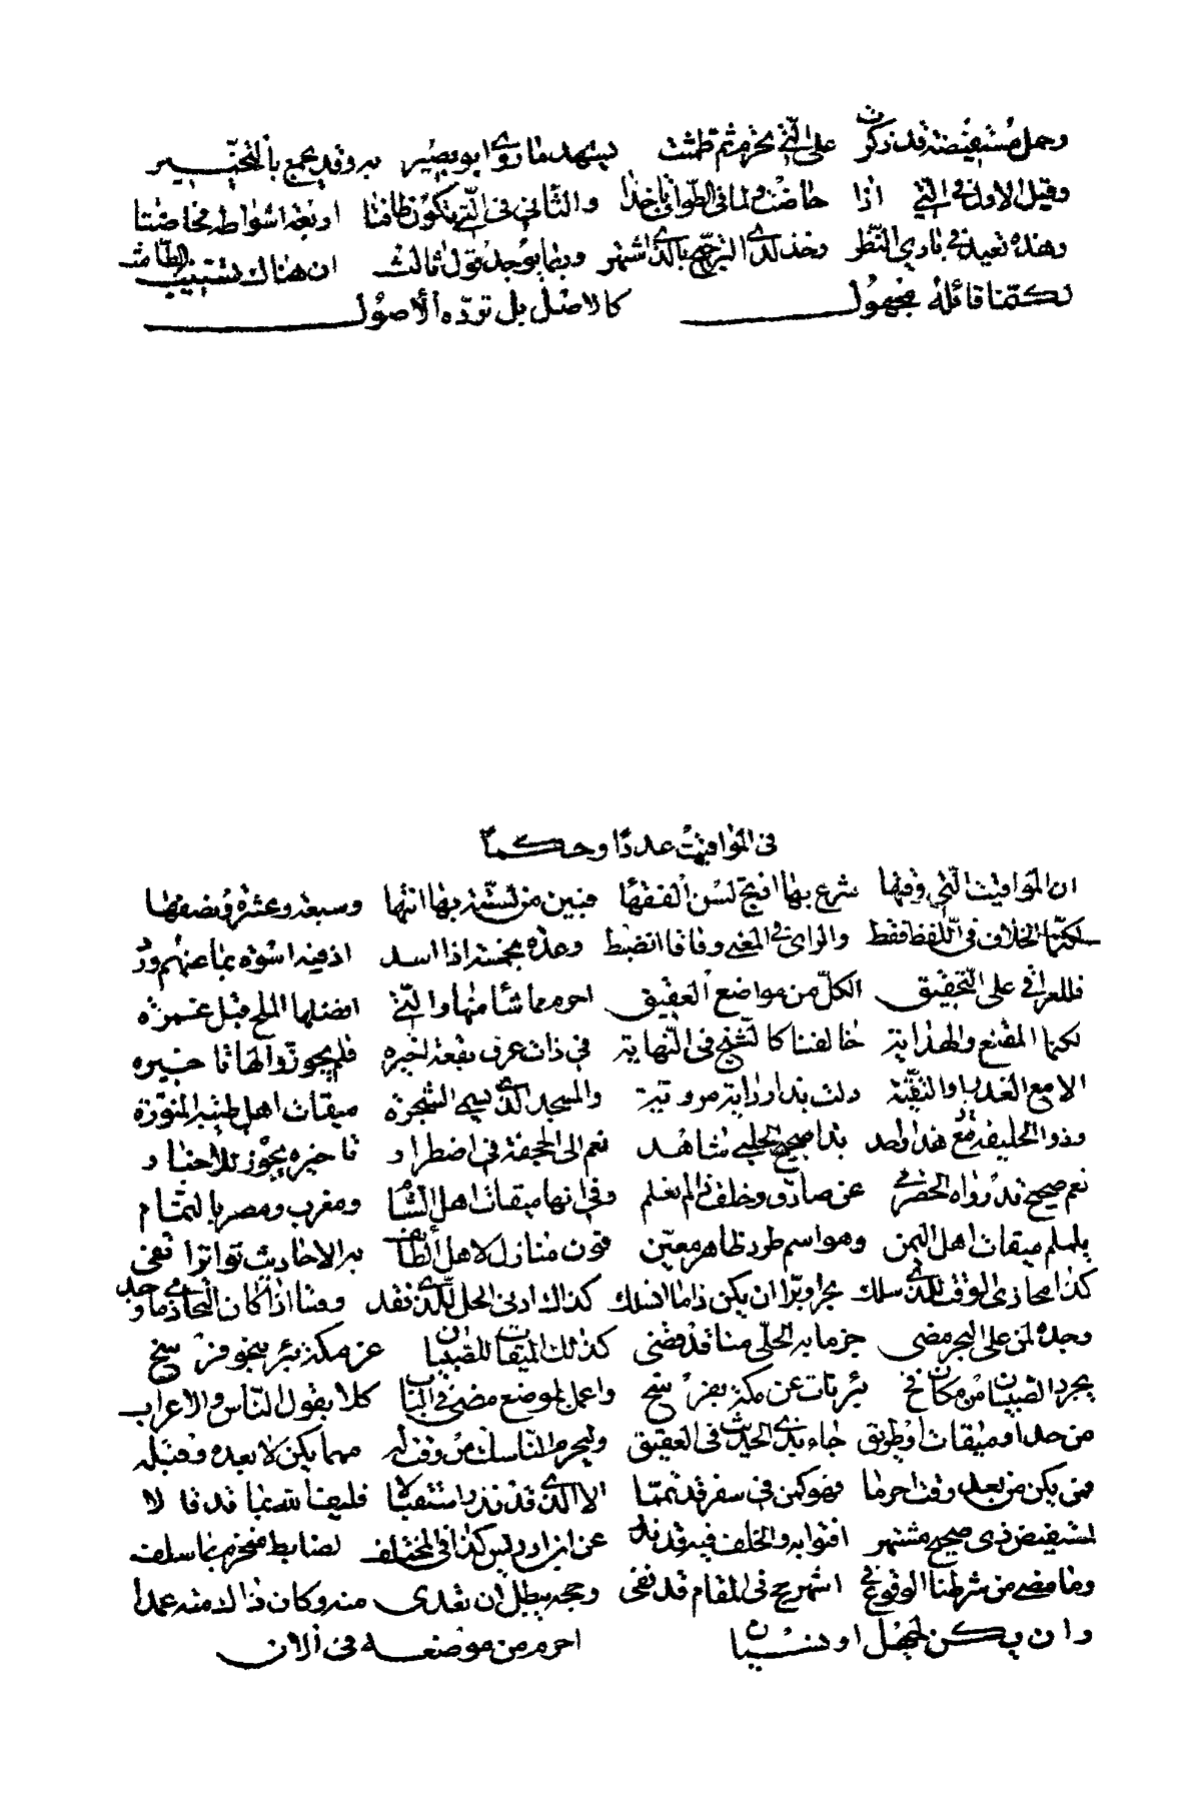 وحمل مستفيضة قد ذكرت على التي تحرم ثم طمثت يشهد ما روى ابو بصير به وقد يجمع بالتخيير
وقيل الاول في التي اذا حاضت ولما في الطواف اخذا والثاني في التي تكون طافتا اربعة اشواط فحاضتا
وهذه بعيدة في بادي النظر وخذ لدى الترجيح بالذي اشتهر وربما يوجد قول ثالث ان هناك تستنيب الطامث
لكنما قائله مجهول كالاصل بل ترده الاصول
في المواقيت عددا وحكما
ان المواقيت التي وقتها شرع بها افتح لسن الفقها فبين من ستة بها انتهى وسبعة وعشرة ونصفها
لكنما الخلاف في اللفظ فقط والراى في المعنى وفاقا انضبط وعده بخمسة اذا اسد اذ فيه اسوة بما عنهم ورد
فللعراقي على التحقيق الكل من مواضع العقيق احرم مما شا منها والتي افضلها المسلح قبل غمرة
لكنما المقنع والهداية خالفنا كالشيخ في النهاية في ذات عرق بقعة اخيره فلم يجوزوا لها تاخيره
الا مع العذر او التقية دلت بذا رواية مروية والمسجد الذي يسمى الشجرة ميقات اهل طيبة المنورة
وذو الحليفة مع هذا واحد بذا صحيح الحلبي شاهد نعم الى الجحفة في اضطرار تاخيره يجوز لا اختيار
نعم صحيح قد رواه الحضرمي عن صادق وخلف ذا لم يعلم وفي انها ميقات اهل الشام ومغرب ومصر بالتمام
يلملم ميقات اهل اليمن وهو اسم طود ظاهر معين قرن منازل لاهل الطائف به الاحاديث تواترا تفي
كذا محاذي الوقت للذي سلك بحرا وبرا ان يكن ذاما انسلك كذاك ادنى الحل للذي نفد وفينا اذا كان التحاذي ما وجد
وحده لمن على البحر مضى جزما به الحلي منا قد قضى كذلك الميقات للصبيان عن مكة بئر بنحو فرسخ
يجرد الصبيان من مكان فخ بئر نات عن مكة بفرسخ واعمل لموضع مضى في الباب كلا بقول الناس والاعراب
من حد او ميقات او طريق جاء بذي الحديث في العقيق وليحرم الناسك من وقت له مهما يكن لا بعده وقبله
فمن يكن من بعد وقت احرما فهو كمن في سفر قد تمما الا الذي قد نذر استقبالا فليف لله بما قد قالا
لمستفيض ذي صحيح مشتهر افتوا به والخلف فيه قد ندر عن ابن ادريس كذا في المختلف لضابط منخرم بما سلف
وما مضى من شرطنا الوقوع في اشهر حج في المقام قد نفي وحجه يبطل ان تعدى عنه وكان ذالك منه عمدا
وان يكن لجهل او نسيان احرم من موضعه في الان